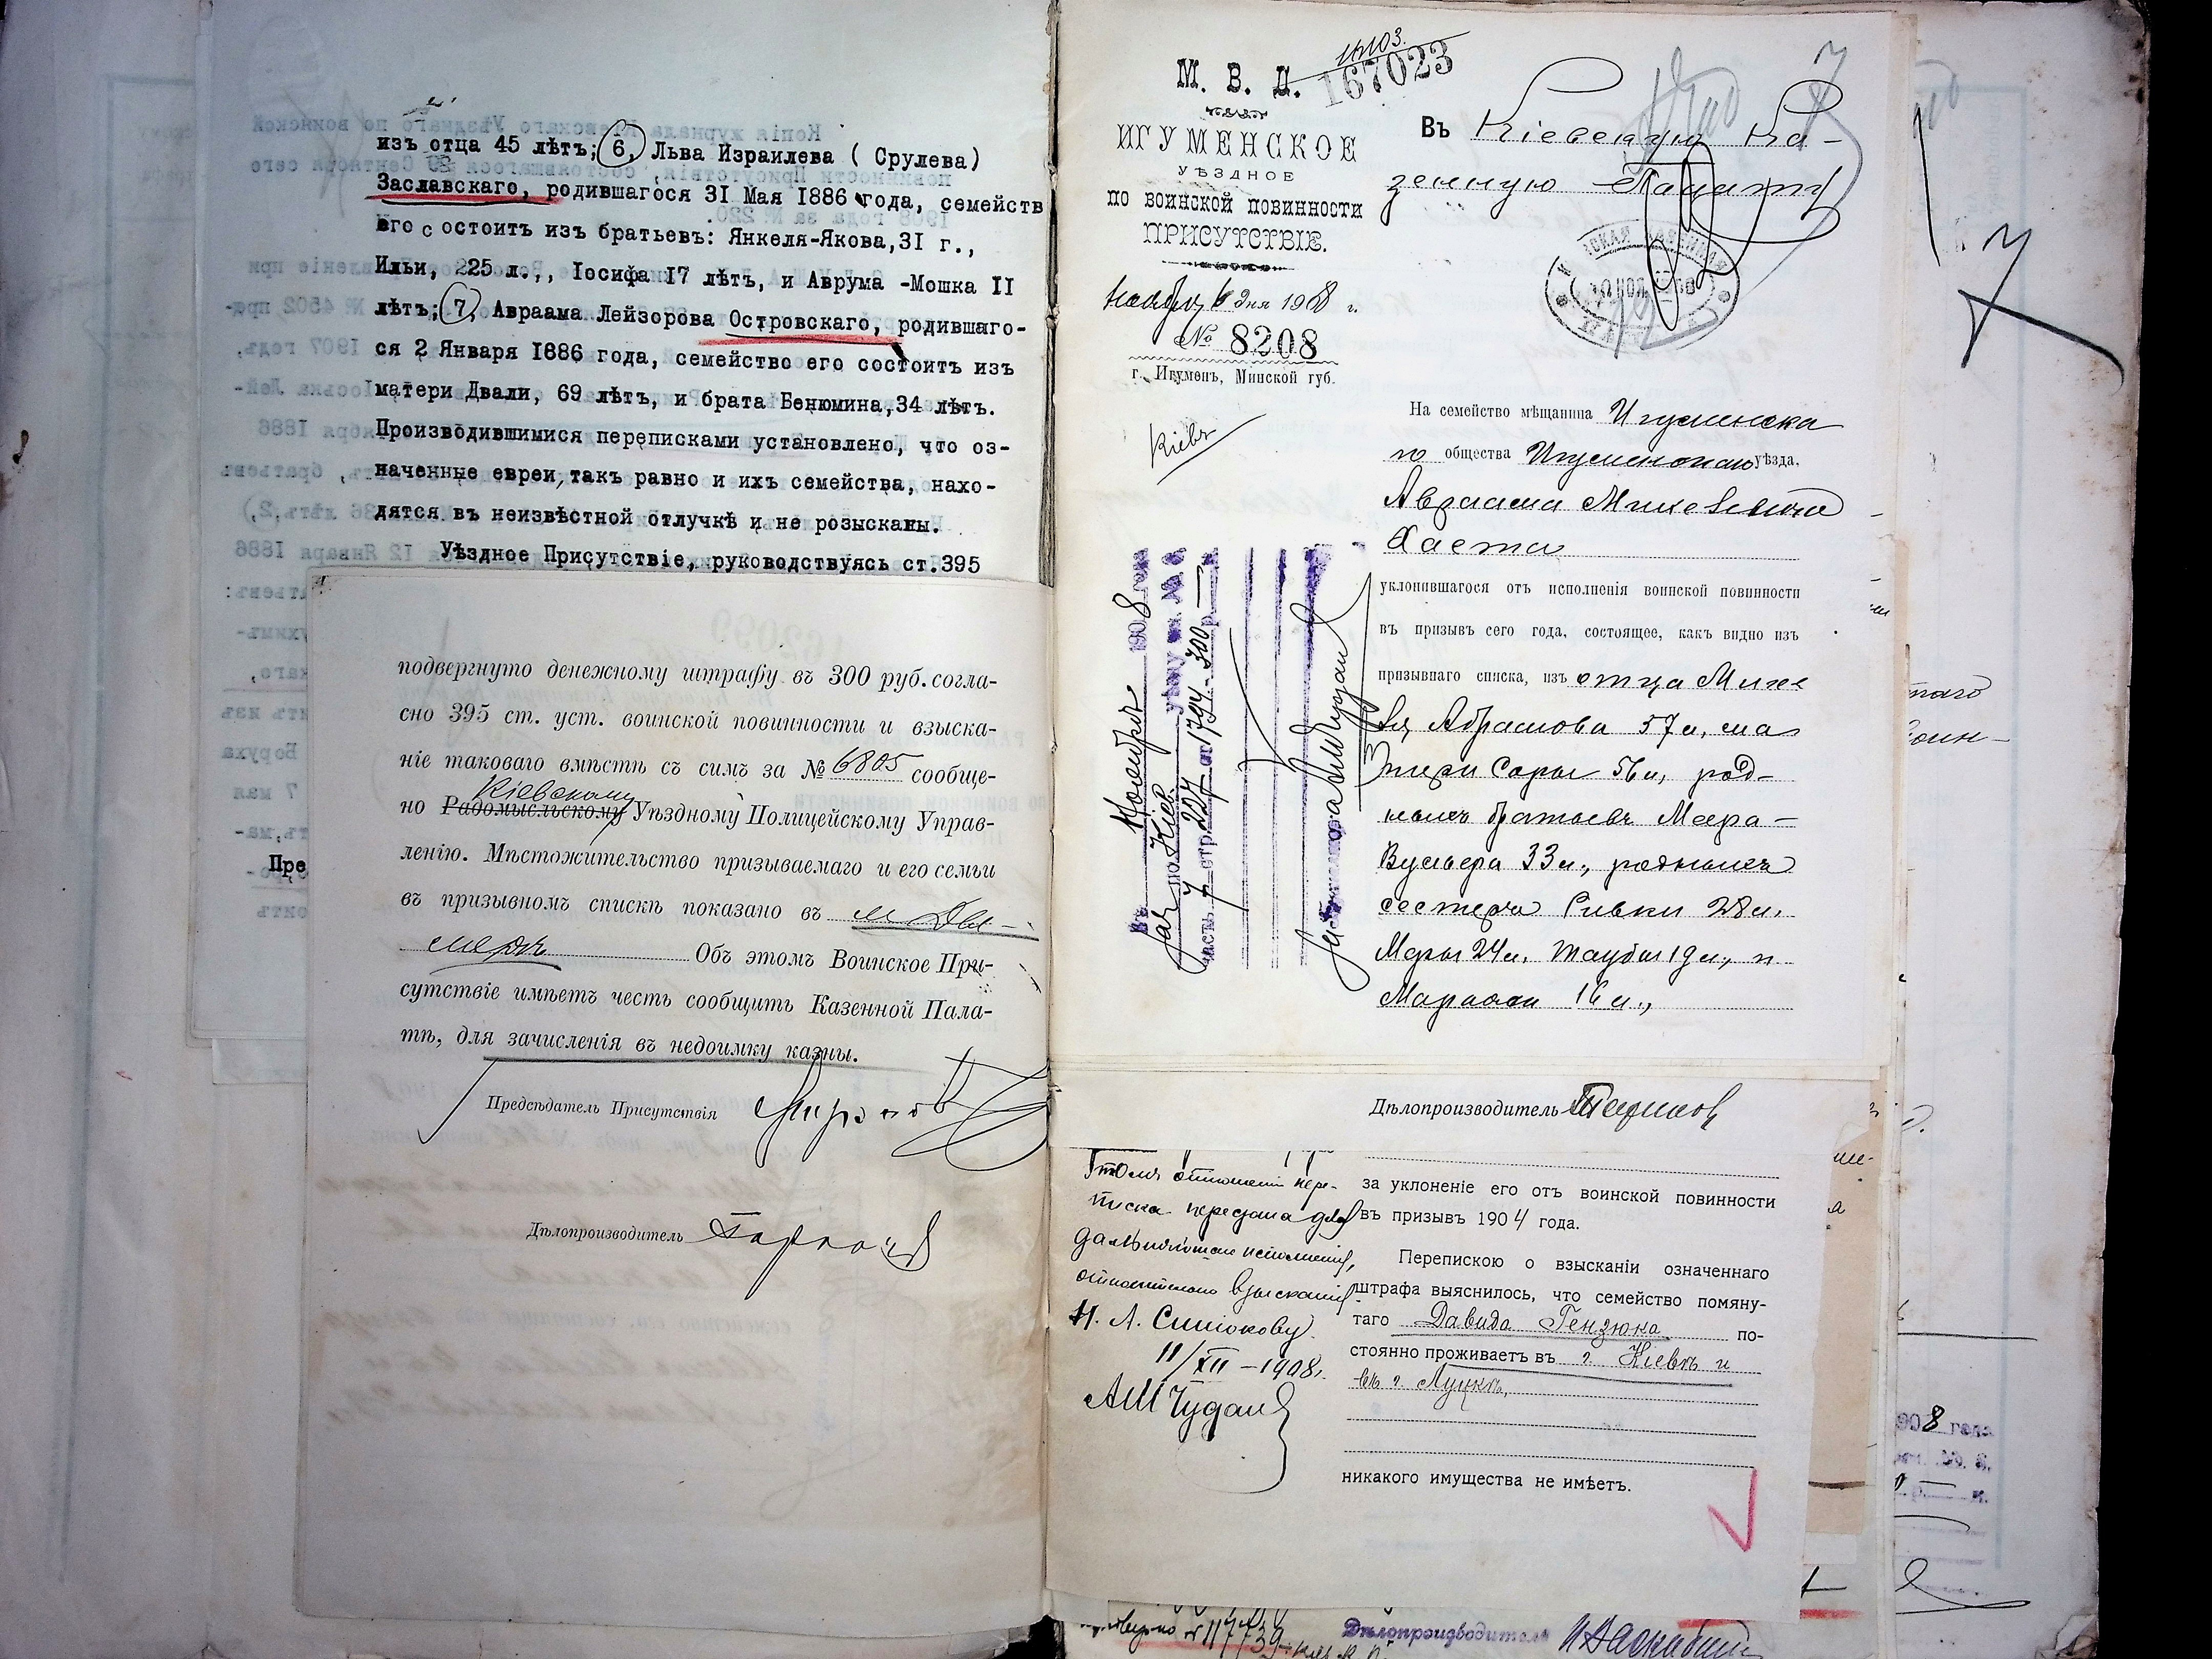 изъ отца 45 лѣтъ; 6, Льва Израилева ( Срулева)
Заславскаго, родившагося 31 Мая 1886 года, семейств
его состоитъ изъ братьевъ: Янкеля-Якова,31 г.,
Ильи, 225 л.,, Іосифа 17 лѣтъ, и Аврума -Мошка II
лѣтъ; 7, Авраама Лейзорова Островскаго, родившаго-
ся 2 Января 1886 года, семейство его состоитъ изъ
матери Двали, 69 лѣтъ, и брата Бенюмина,34 лѣтъ.
Производившимися переписками установлено, что оз-
наченные евреи, такъ равно и ихъ семейства, нахо-
дятся въ неизвѣстной отлучкѣ и не розысканы.
Уѣздное Присутствіе, руководствуясь ст.395
Пре
подвергнуто денежному штрафу въ 300 руб. согла-
сно 395 ст. уст. воинской повинности и взыска-
ніе таковаго вмѣстѣ съ симъ за № 6805 сообще-
Кіевскому
но Радомысльскому Уѣздному Полицейскому Управ-
ленію. Мѣстожительство призываемаго и его семьи
въ призывномъ спискѣ показано въ м. Ды-
мерѣ Объ этомъ Воинское При-
сутствіе имѣетъ честь сообщить Казенной Пала-
тѣ, для зачисленія въ недоимку казны.
Предсѣдатель Присутствія
Дѣлопроизводитель
М. В. Д.
167023
ИГУМЕНСКОЕ
УѢЗДНОЕ
ПО ВОИНСКОЙ ПОВИННОСТИ
ПРИСУТСТВІЕ.
Ноября 6 дня 1908 г.
№ 8208
г. Игуменъ, Минской губ.
Кіевъ
Въ Кіевскую Ка-
зенную Палату
На семейство мѣщанина Игуменска
го общества Игуменскаго уѣзда,
Авраама
Хаета
уклонившагося отъ исполненія воинской повинности
въ призывъ сего года, состоящее, какъ видно изъ
призывнаго списка, изъ отца
Абрамова 57 л, ма
тери Сары 56 л, род-
ныхъ братьевъ Меера-
Вульфа 33 л., родныхъ
сестеръ Ривки 28 л.
Меры 24 л. Таубы 19 л., и
16 л.,
Въ Ноябрѣ 1908 года
по Кіев. уѣзду кн. № 6
часть 7 стр. 227 ст 1794 - 300 р.
Дѣлопроизводитель
за уклоненіе его отъ воинской повинности
въ призывъ 1904 года.
Перепискою о взысканіи означеннаго
штрафа выяснилось, что семейство помяну-
таго Давида Гензюка по-
стоянно проживаетъ въ г. Кіевѣ и
въ г. Луцкѣ,
никакого имущества не имѣетъ.
отношеніи пере-
писка передана для
дальнѣйшаго исполненія,
относительно взысканія
Н. А. Синюкову.
11/XII - 1908 г.
Дѣлопроизводитель